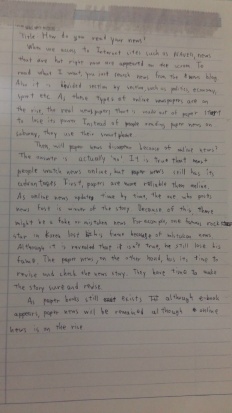 Title: How do you read your news?
When we access to Internet sites such as NAVER, news
that are hot right now are appeared on the screen. To
read what I want, you just search news from the known blog.
Also it is divided section by section, such as politics, economy,
sport etc. As these types of online newspapers are on
the rise, the real newspapers that's made out of paper start
to lose its power. Instead of people reading paper news on
subway, they use their smartphone.
Then, will paper news disappear because of online news?
The answer is actually 'no'. It is true that most
people watch news online, but paper news still has its
advantages. First, papers are more reliable than online.
As online news update time by time, the one who posts
news fast is the story. Because of this there
might be a fake or mistaken news. For example, one famous
star in Korea lose his fame because of mistaken news.
Although it is revealed that it isn't true, he still lose his
fame. The paper news, on the other hand, has time to
revise and check the news story. They have time to make
the story sure and revise.
As paper books still exists although e-book
appears, paper news will be remained although online
news is on the rise.